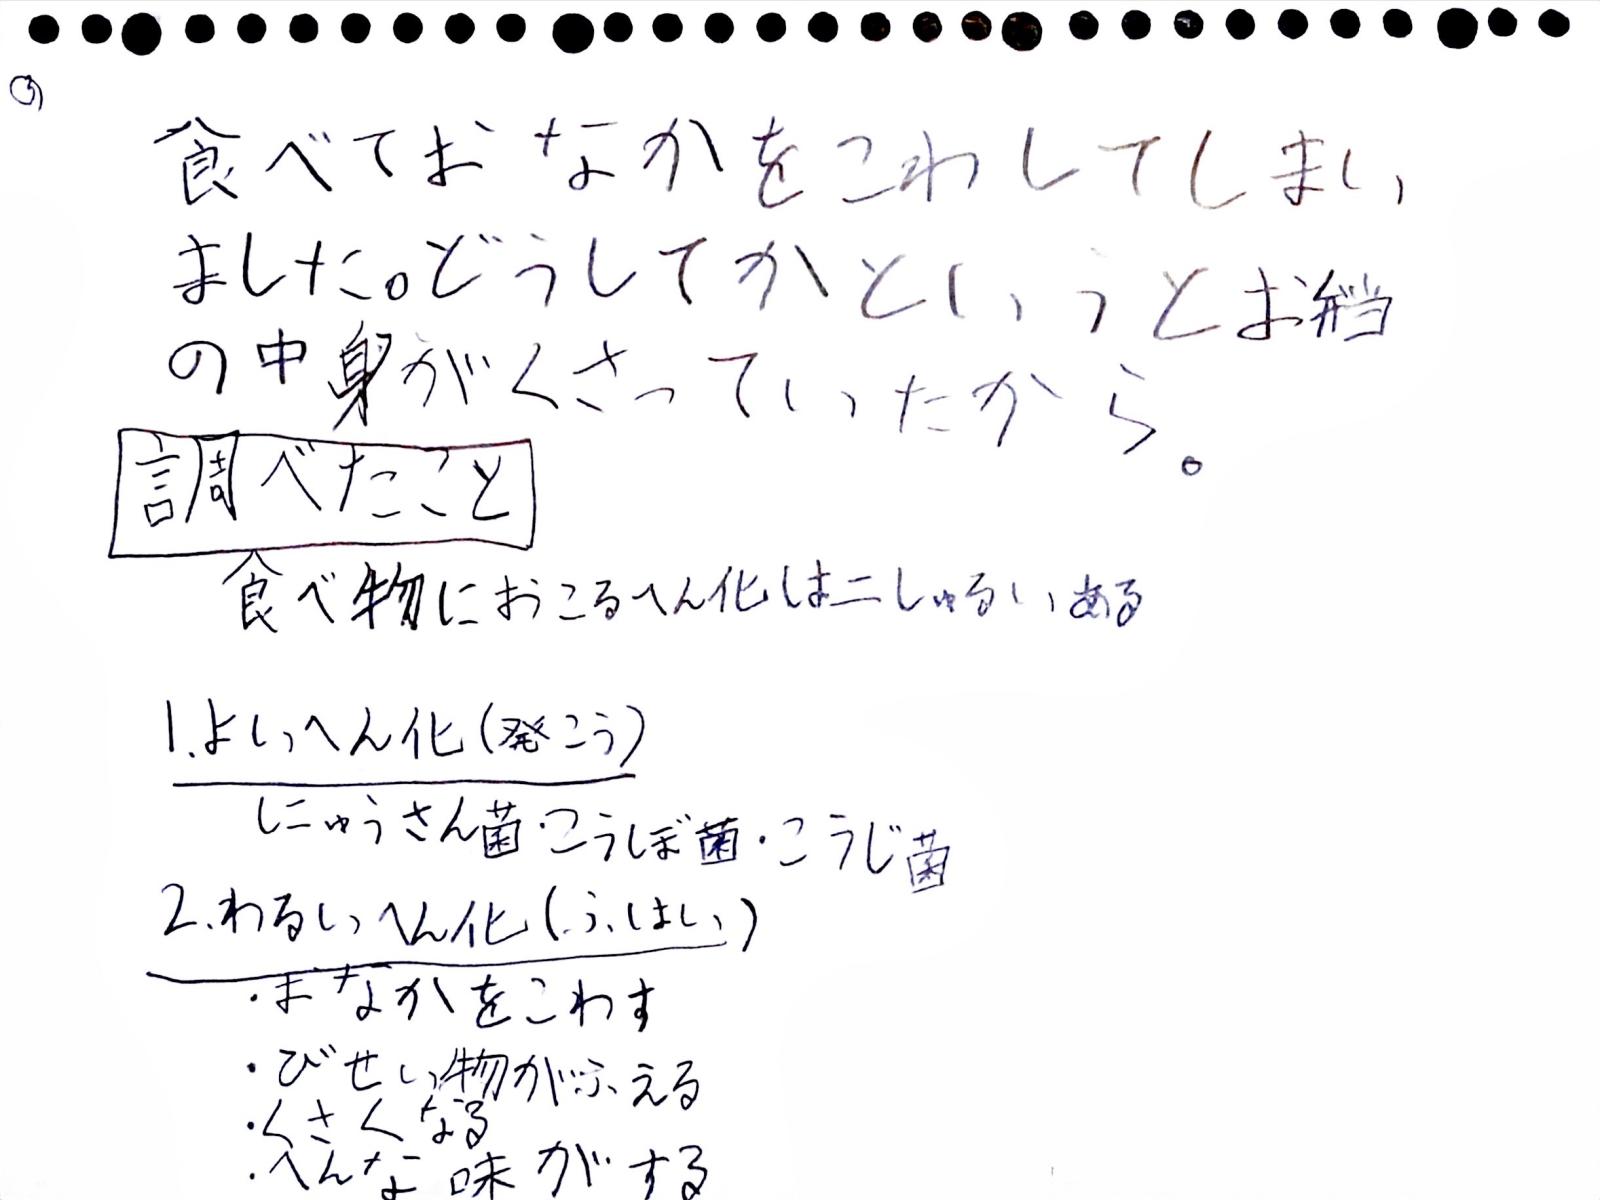 食べておなかをこわしてしまい
ました。どうしてかというとお弁当
の中身がくさっていったから。
調べたこと
食べ物におこるへん化は二しゅるいある
1.よいへん化(発こう)
にゅうさん菌・こうぼ菌・こうじ菌
2.わるいへん化(ふはい)
・おなかをこわす
・びせい物がふえる
・くさくなる
・へんな味がする